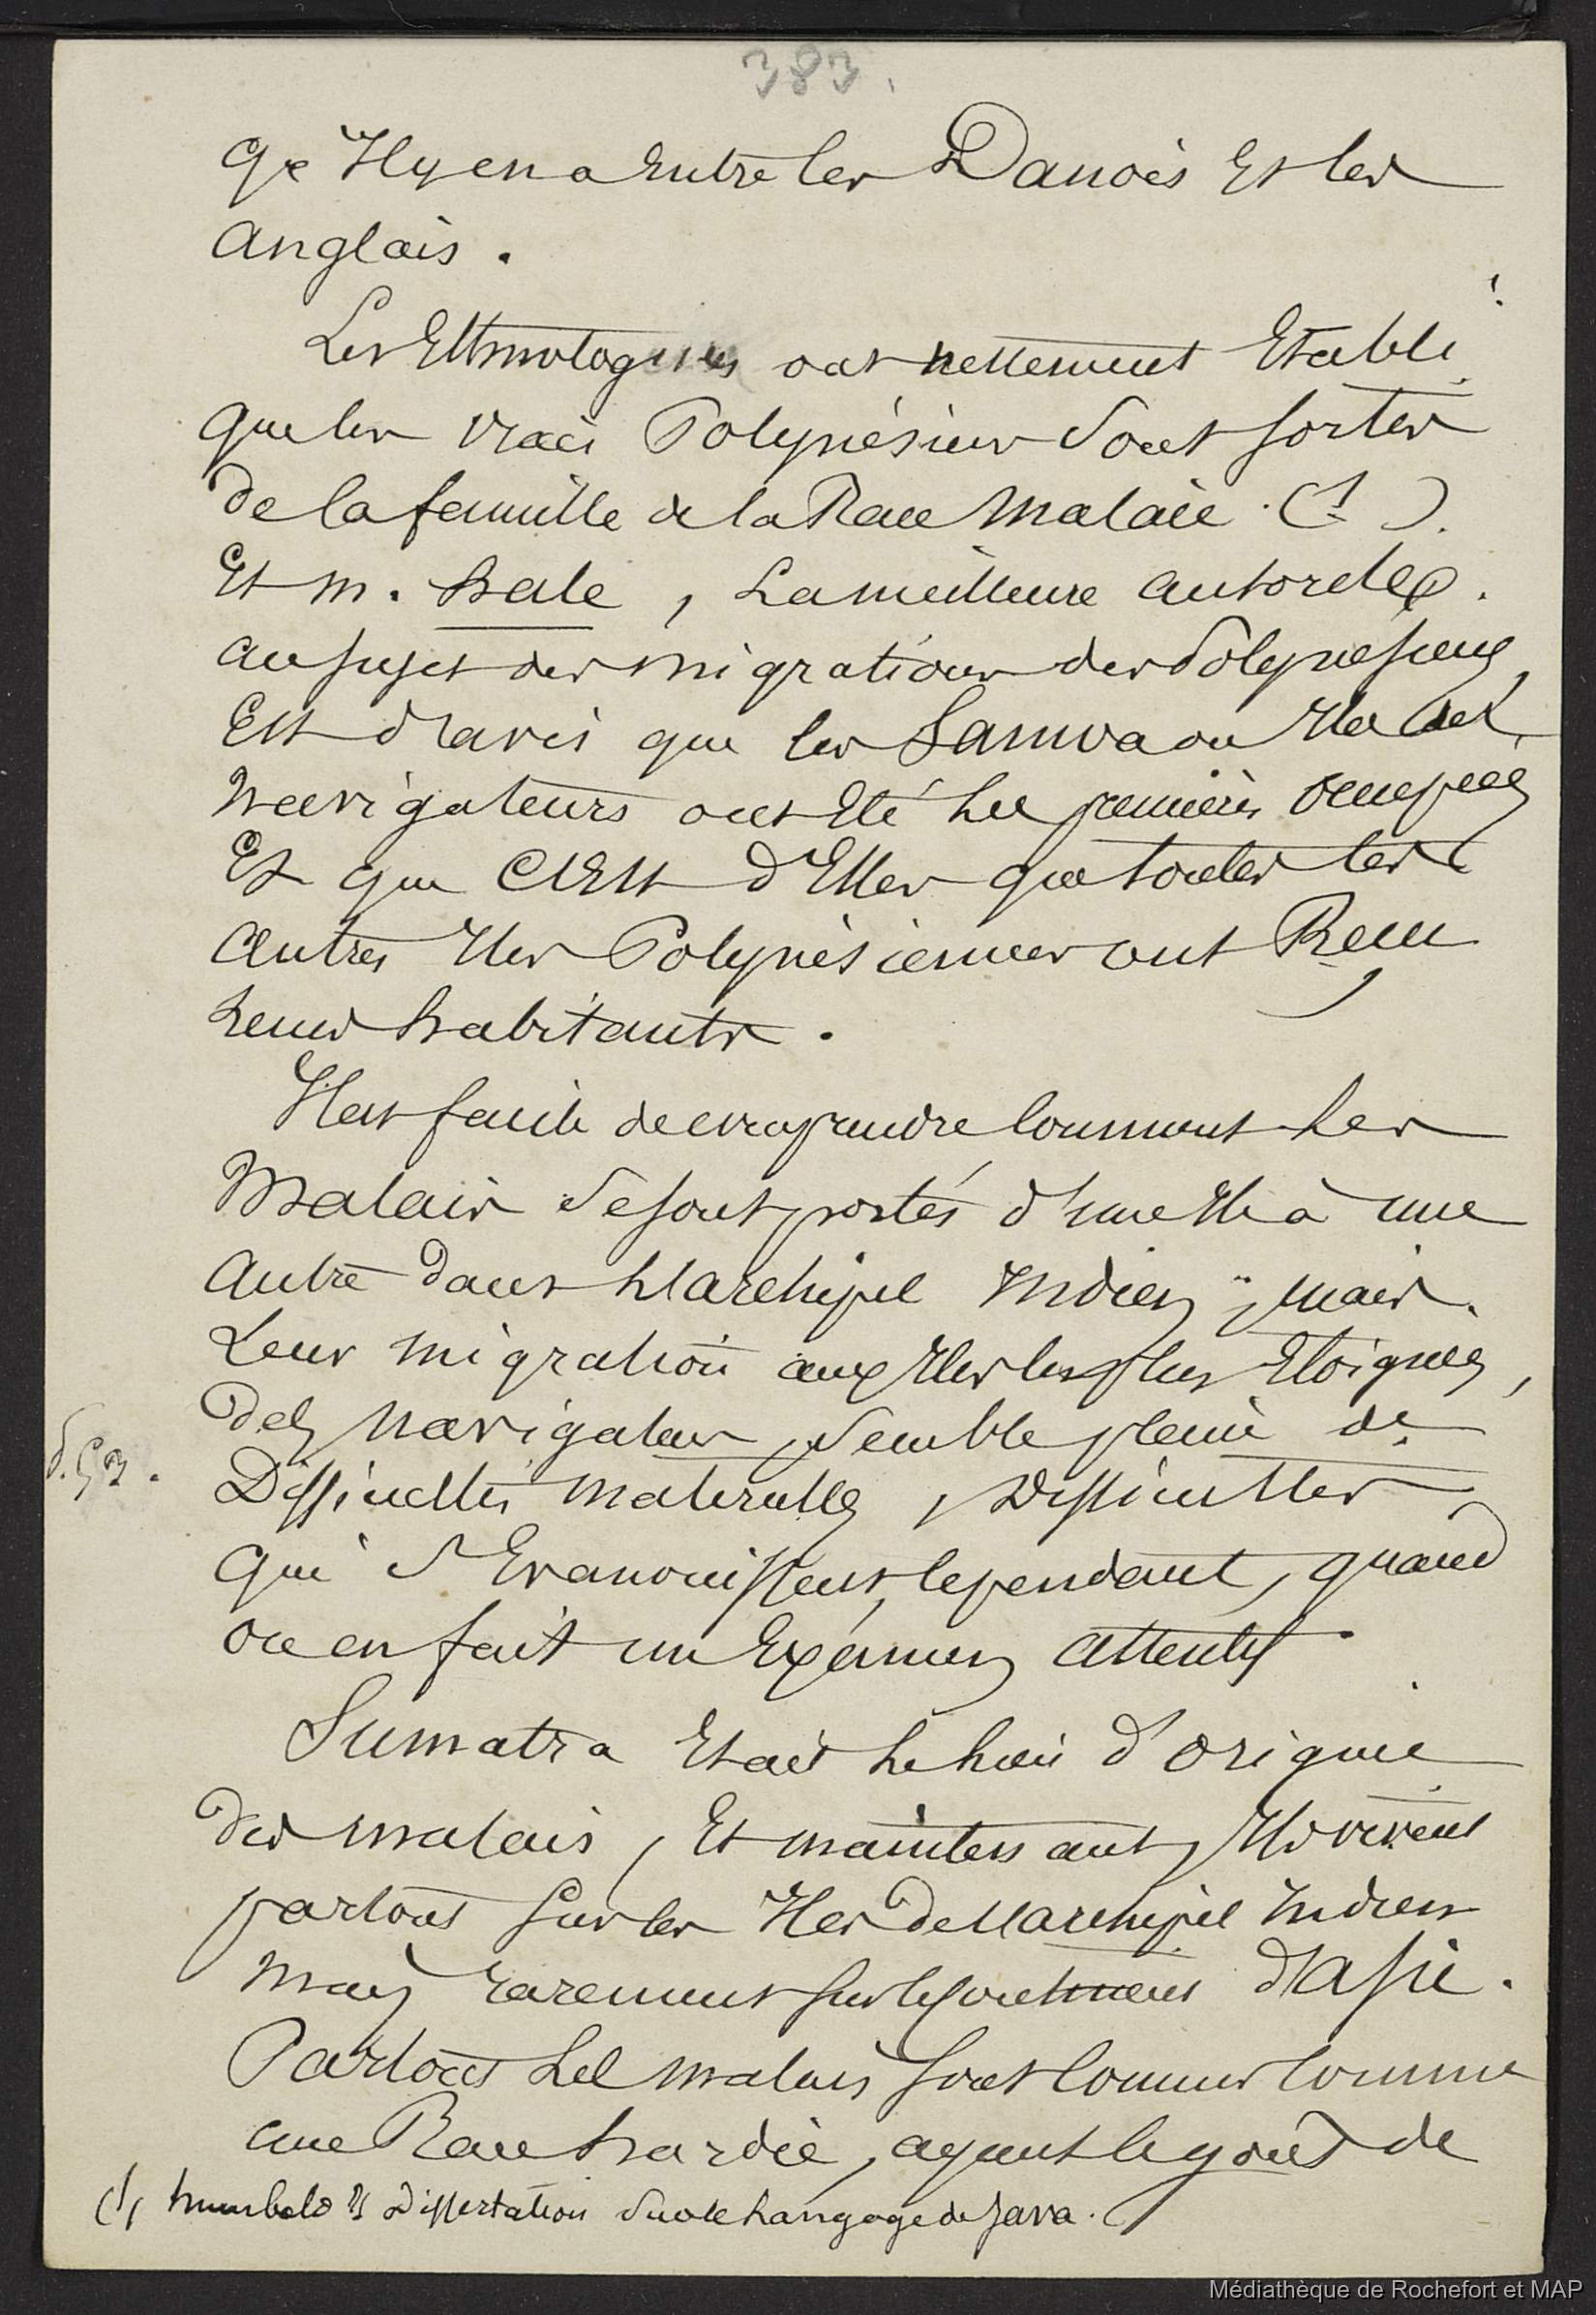 383.
qe Il y en a Entre les Danois Et les
Anglais.
Les Ethnologues ont nettement Etabli
que les vrais Polynésiens sont sortis
de la famille de la Race Malaie. (1).
Et M. Hale, La meilleure autorité
au sujet des migrations des Polynésiens,
Est d'avis que les Samoa ou Iles des
Navigateurs ont Eté les premières occupées
Et que c'Est d'Elles que toutes les
autres Iles Polynésiennes ont Reçu
Leurs habitants.
Il est facile de comprendre comment Les
Malais se sont portés d'une Ile à une
autre dans L'archipel Indien, mais
Leur migration aux Iles les plus Eloignées,
des Navigateurs, semble pleine de
p. 53.
Difficultés matérielles, Difficultés
qui s'Evanouissent, cependant, quand
on en fait un Examen attentif.
Sumatra Etait Le lieu d'origine
des malais, Et maintenant, Ils vivent
partout sur les Iles de l'archipel Indien
Mais rarement sur le continent d'Asie.
Partout Les malais sont connus comme
une Race hardie, ayant le goût de
(1, Humboldt Dissertation sur le Langage de Java.
Médiathèque de Rochefort et MAP